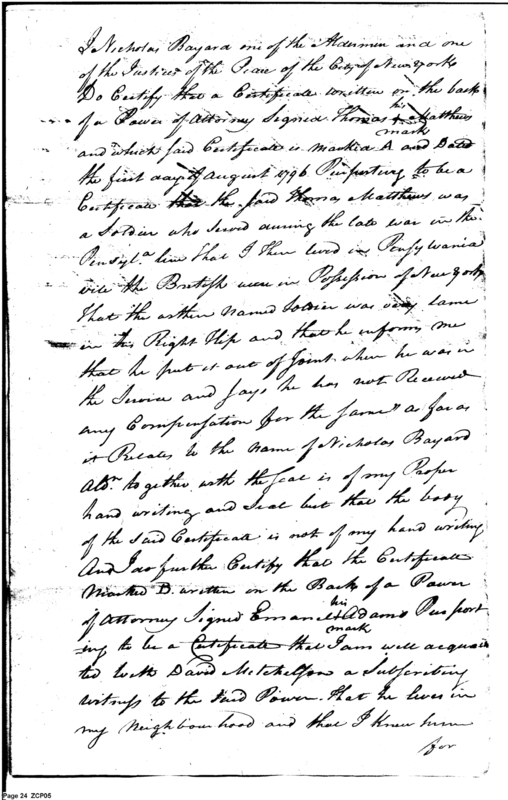 I Nicholas Bayard one of the Aldermen and one
of the Justices of the Peace of the City of New York
Do Certify that a Certificate written on the back
of a Power of Attorney Signed Thomas his + mark Matthews
and which said Certificate is marked A and Dated
the first day of August 1796 Purporting to be a
Certificate that the said Thomas Matthews was
a Soldier who served during the late war in the
Pensyla line that I then lived in Pensylvania
will the British were in Possession of New York
that the within named Soldier was very lame
in his Right Hip and that he informs me
that he put it out of Joint when he was in
the Service and says he has not Received
any Compensation for the same as far as
it Relates to the name of Nicholas Bayard
Aldn. together with the Seal is of my Proper
hand writing and Seal but that the body
of the said Certificate is not of my hand writing
And I do further Certify that the Certificate
Marked D. written on the Back of a Power
of Attorney Signed Emanuel his + mark Adams Purport
ing to be a Certificate that I am well acquain
ted with David Mitchelson a Subscribing
witness to the said Power. That he lives in
my Neighbourhood and that I knew him
for
Page 24 ZCP05